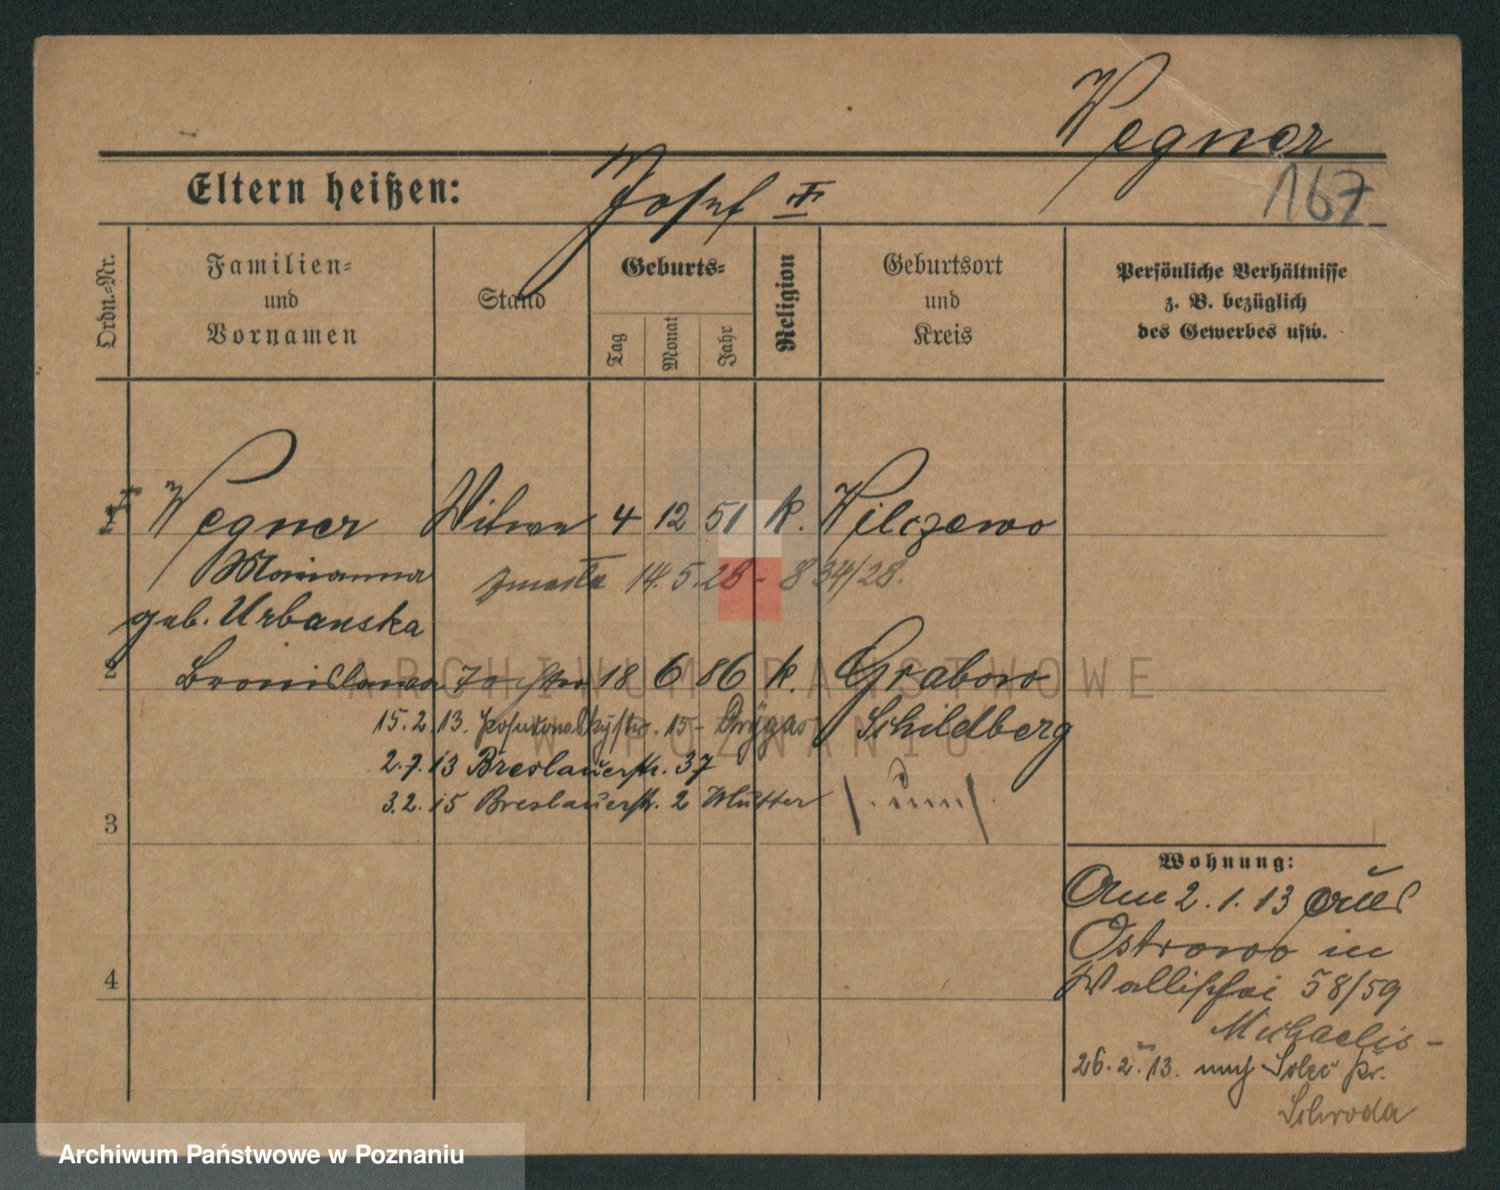 Wegner
Eltern heißen: Josef
167
Ordn.-Nr.
Familien-
und
Vornamen
Stand
Geburts-
Tag
Monat
Jahr
Religion
Geburtsort
und
Kreis
Persönliche Verhältnisse
z. B. bezüglich
des Gewerbes usw.
1 Wegner Witwe 4 12 51 k. Wilczewo
Marianna zmarła 14.5.28 - 834/28.
geb. Urbanska
2 Bronislawa Tochter 18 6 86 k. Grabow
15.2.13. 15 - Schildberg
2.7.13 Breslauerstr. 37
3.2.15 Breslauerstr. 2 Mutter
3
4
Wohnung:
Am 2.1.13 aus
Ostrowo in
Wallischei 58/59
Michaelis-
26.2.13. nach Solec Kr.
Schroda
ARCHIWUM PAŃSTWOWE
W POZNANIU
Archiwum Państwowe w Poznaniu